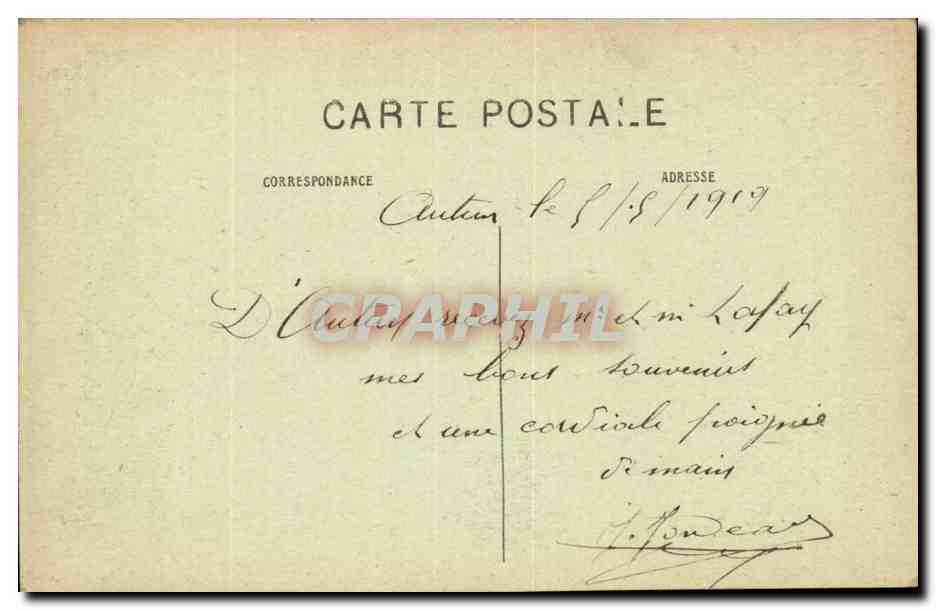 CARTE POSTALE
CORRESPONDANCE ADRESSE
Autun le 5/5/1919
D'Autun recevez Mr et Me Lafay
mes bons souvenirs
et une cordiale poignée
de mains
CPAPHIL